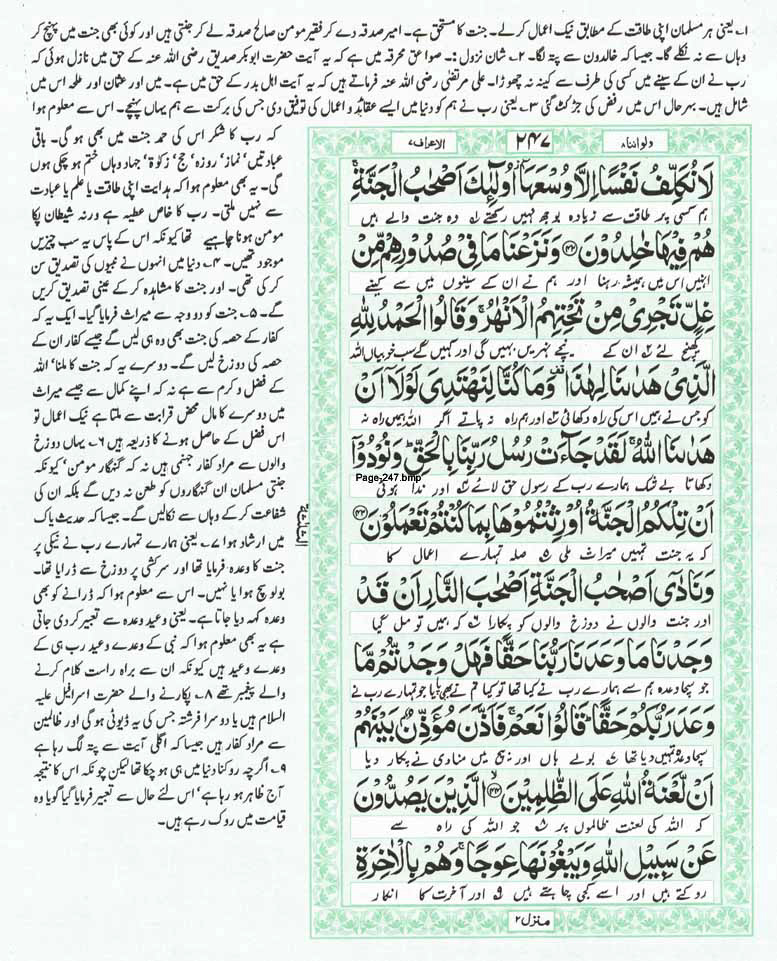 ۱؎ یعنی ہر مسلمان اپنی طاقت کے مطابق نیک اعمال کرلے۔ جنت کا مستحق ہے۔ امیر صدقہ دے کر فقیر مومن صالح صدقہ لے کر جنتی ہیں اور کوئی بھی جنت میں پہنچ کر
وہاں سے نہ نکلے گا۔ جیسا کہ خالدون سے پتہ لگا۔ ۲؎ شان نزول :۔ صواعق محرقہ میں ہے کہ یہ آیت حضرت ابوبکر صدیق رضی اللہ عنہ کے حق میں نازل ہوئی کہ
رب نے ان کے سینے میں کسی کی طرف سے کینہ نہ چھوڑا۔ علی مرتضٰی رضی اللہ عنہ فرماتے ہیں کہ یہ آیت اہل بدر کے حق میں ہے۔ میں اور عثمان اور طلحہ اس میں
شامل ہیں۔ بہرحال اس میں رفض کی جڑ کٹ گئی ۳؎ یعنی رب نے ہم کو دنیا میں ایسے عقائد و اعمال کی توفیق دی جس کی برکت سے ہم یہاں پہنچے۔ اس سے معلوم ہوا
کہ رب کا شکر اس کی حمد جنت میں بھی ہو گی۔ باقی
عبادتیں' نماز' روزہ' حج' زکوٰۃ' جہاد وہاں ختم ہو چکی ہوں
گی۔ یہ بھی معلوم ہوا کہ ہدایت اپنی طاقت یا علم یا عبادت
سے نہیں ملتی۔ رب کا خاص عطیہ ہے ورنہ شیطان پکا
مومن ہونا چاہیے تھا کیونکہ اس کے پاس یہ سب چیزیں
موجود تھیں۔ ۴؎ دنیا میں انہوں نے نبیوں کی تصدیق سن
کر کی تھی۔ اور جنت کا مشاہدہ کر کے عینی تصدیق کریں
گے۔ ۵؎ جنت کو دو وجہ سے میراث فرمایا گیا۔ ایک یہ کہ
کفار کے حصہ کی جنت بھی وہ ہی لیں گے جیسے کفار ان کے
حصہ کی دوزخ لیں گے۔ دوسرے یہ کہ جنت کا ملنا' اللہ
کے فضل و کرم سے ہے نہ کہ اپنے کمال سے جیسے میراث
میں دوسرے کا مال محض قرابت سے ملتا ہے نیک اعمال تو
اس فضل کے حاصل ہونے کا ذریعہ ہیں ۶؎ یہاں دوزخ
والوں سے مراد کفار جہنمی ہیں نہ کہ گنہگار مومن' کیونکہ
جنتی مسلمان ان گنہگاروں کو طعن نہ دیں گے بلکہ ان کی
شفاعت کر کے وہاں سے نکالیں گے۔ جیسا کہ حدیث پاک
میں ارشاد ہوا ۷؎ یعنی ہمارے تمہارے رب نے نیکی پر
جنت کا وعدہ فرمایا تھا اور سرکشی پر دوزخ سے ڈرایا تھا۔
بولو سچ ہوا یا نہیں۔ اس سے معلوم ہوا کہ ڈرانے کو بھی
وعدہ کہہ دیا جاتا ہے۔ یعنی وعید وعدہ سے تعبیر کر دی جاتی
ہے یہ بھی معلوم ہوا کہ نبی کے وعدے وعید رب ہی کے
وعدے وعید ہیں کیونکہ ان سے براہ راست کلام کرنے
والے پیغمبر تھے ۸؎ پکارنے والے حضرت اسرافیل علیہ
السلام ہیں یا دوسرا فرشتہ جس کی یہ ڈیوٹی ہو گی اور ظالمین
سے مراد کفار ہیں جیسا کہ اگلی آیت سے پتہ لگ رہا ہے
۹؎ اگرچہ روکنا دنیا میں ہی ہو چکا تھا لیکن چونکہ اس کا نتیجہ
آج ظاہر ہو رہا ہے' اس لئے حال سے تعبیر فرمایا گیا گویا وہ
قیامت میں روک رہے ہیں۔
ولواننا۸ ۲۴۷ الاعراف۷
لَا نُكَلِّفُ نَفْسًا اِلَّا وُسْعَهَاۤ اُولٰٓئِكَ اَصْحٰبُ الْجَنَّةِ ۚ
ہم کسی پر طاقت سے زیادہ بوجھ نہیں رکھتے ۱؎ وہ جنت والے ہیں
هُمْ فِيْهَا خٰلِدُوْنَ ﴿۴۲﴾ وَنَزَعْنَا مَا فِيْ صُدُوْرِهِمْ مِّنْ
انہیں اس میں ہمیشہ رہنا اور ہم نے ان کے سینوں میں سے کینے
غِلٍّ تَجْرِيْ مِنْ تَحْتِهِمُ الْاَنْهٰرُ ۚ وَقَالُوا الْحَمْدُ لِلّٰهِ
کھینچ لئے ۲؎ ان کے نیچے نہریں بہیں گی اور کہیں گے سب خوبیاں اللہ
الَّذِيْ هَدٰىنَا لِهٰذَا ۫ وَمَا كُنَّا لِنَهْتَدِيَ لَوْلَاۤ اَنْ
کو جس نے ہمیں اس کی راہ دکھائی ۳؎ اور ہم راہ نہ پاتے اگر اللہ ہمیں راہ نہ
هَدٰىنَا اللّٰهُ ۚ لَقَدْ جَآءَتْ رُسُلُ رَبِّنَا بِالْحَقِّ ؕ وَنُوْدُوْۤا
دکھاتا بے شک ہمارے رب کے رسول حق لائے ۴؎ اور ندا ہوئی
Page-247.bmp
اَنْ تِلْكُمُ الْجَنَّةُ اُوْرِثْتُمُوْهَا بِمَا كُنْتُمْ تَعْمَلُوْنَ ﴿۴۳﴾
کہ یہ جنت تمہیں میراث ملی ۵؎ صلہ تمہارے اعمال کا
وَنَادٰۤى اَصْحٰبُ الْجَنَّةِ اَصْحٰبَ النَّارِ اَنْ قَدْ
اور جنت والوں نے دوزخ والوں کو پکارا ۶؎ کہ ہمیں تو مل گیا
وَجَدْنَا مَا وَعَدَنَا رَبُّنَا حَقًّا فَهَلْ وَجَدْتُّمْ مَّا
جو سچا وعدہ ہم سے ہمارے رب نے کیا تھا تو کیا تم نے بھی پایا جو تمہارے رب نے
وَعَدَ رَبُّكُمْ حَقًّا ؕ قَالُوْا نَعَمْ ۚ فَاَذَّنَ مُؤَذِّنٌۢ بَيْنَهُمْ
سچا وعدہ تمہیں دیا تھا ۷؎ بولے ہاں اور بیچ میں منادی نے پکار دیا
اَنْ لَّعْنَةُ اللّٰهِ عَلَى الظّٰلِمِيْنَ ﴿۴۴﴾ الَّذِيْنَ يَصُدُّوْنَ
کہ اللہ کی لعنت ظالموں پر ۸؎ جو اللہ کی راہ سے
عَنْ سَبِيْلِ اللّٰهِ وَيَبْغُوْنَهَا عِوَجًا ۚ وَهُمْ بِالْاٰخِرَةِ
روکتے ہیں اور اسے کجی چاہتے ہیں ۹؎ اور آخرت کا انکار
منزل۲